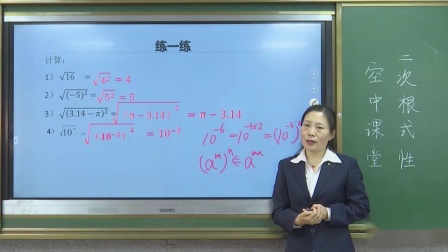 练一练
计算：
1）√16 = √4² = 4
2）√(−5)² = √5² = 5
3）√(3.14−π)² = √(π−3.14)² = π−3.14
4）√10⁻⁶ = √(10⁻³)² = 10⁻³
10⁻⁶ = 10⁻³ˣ² = (10⁻³)
(aᵐ)ⁿ = aᵐⁿ
二次根式 性
空中课堂